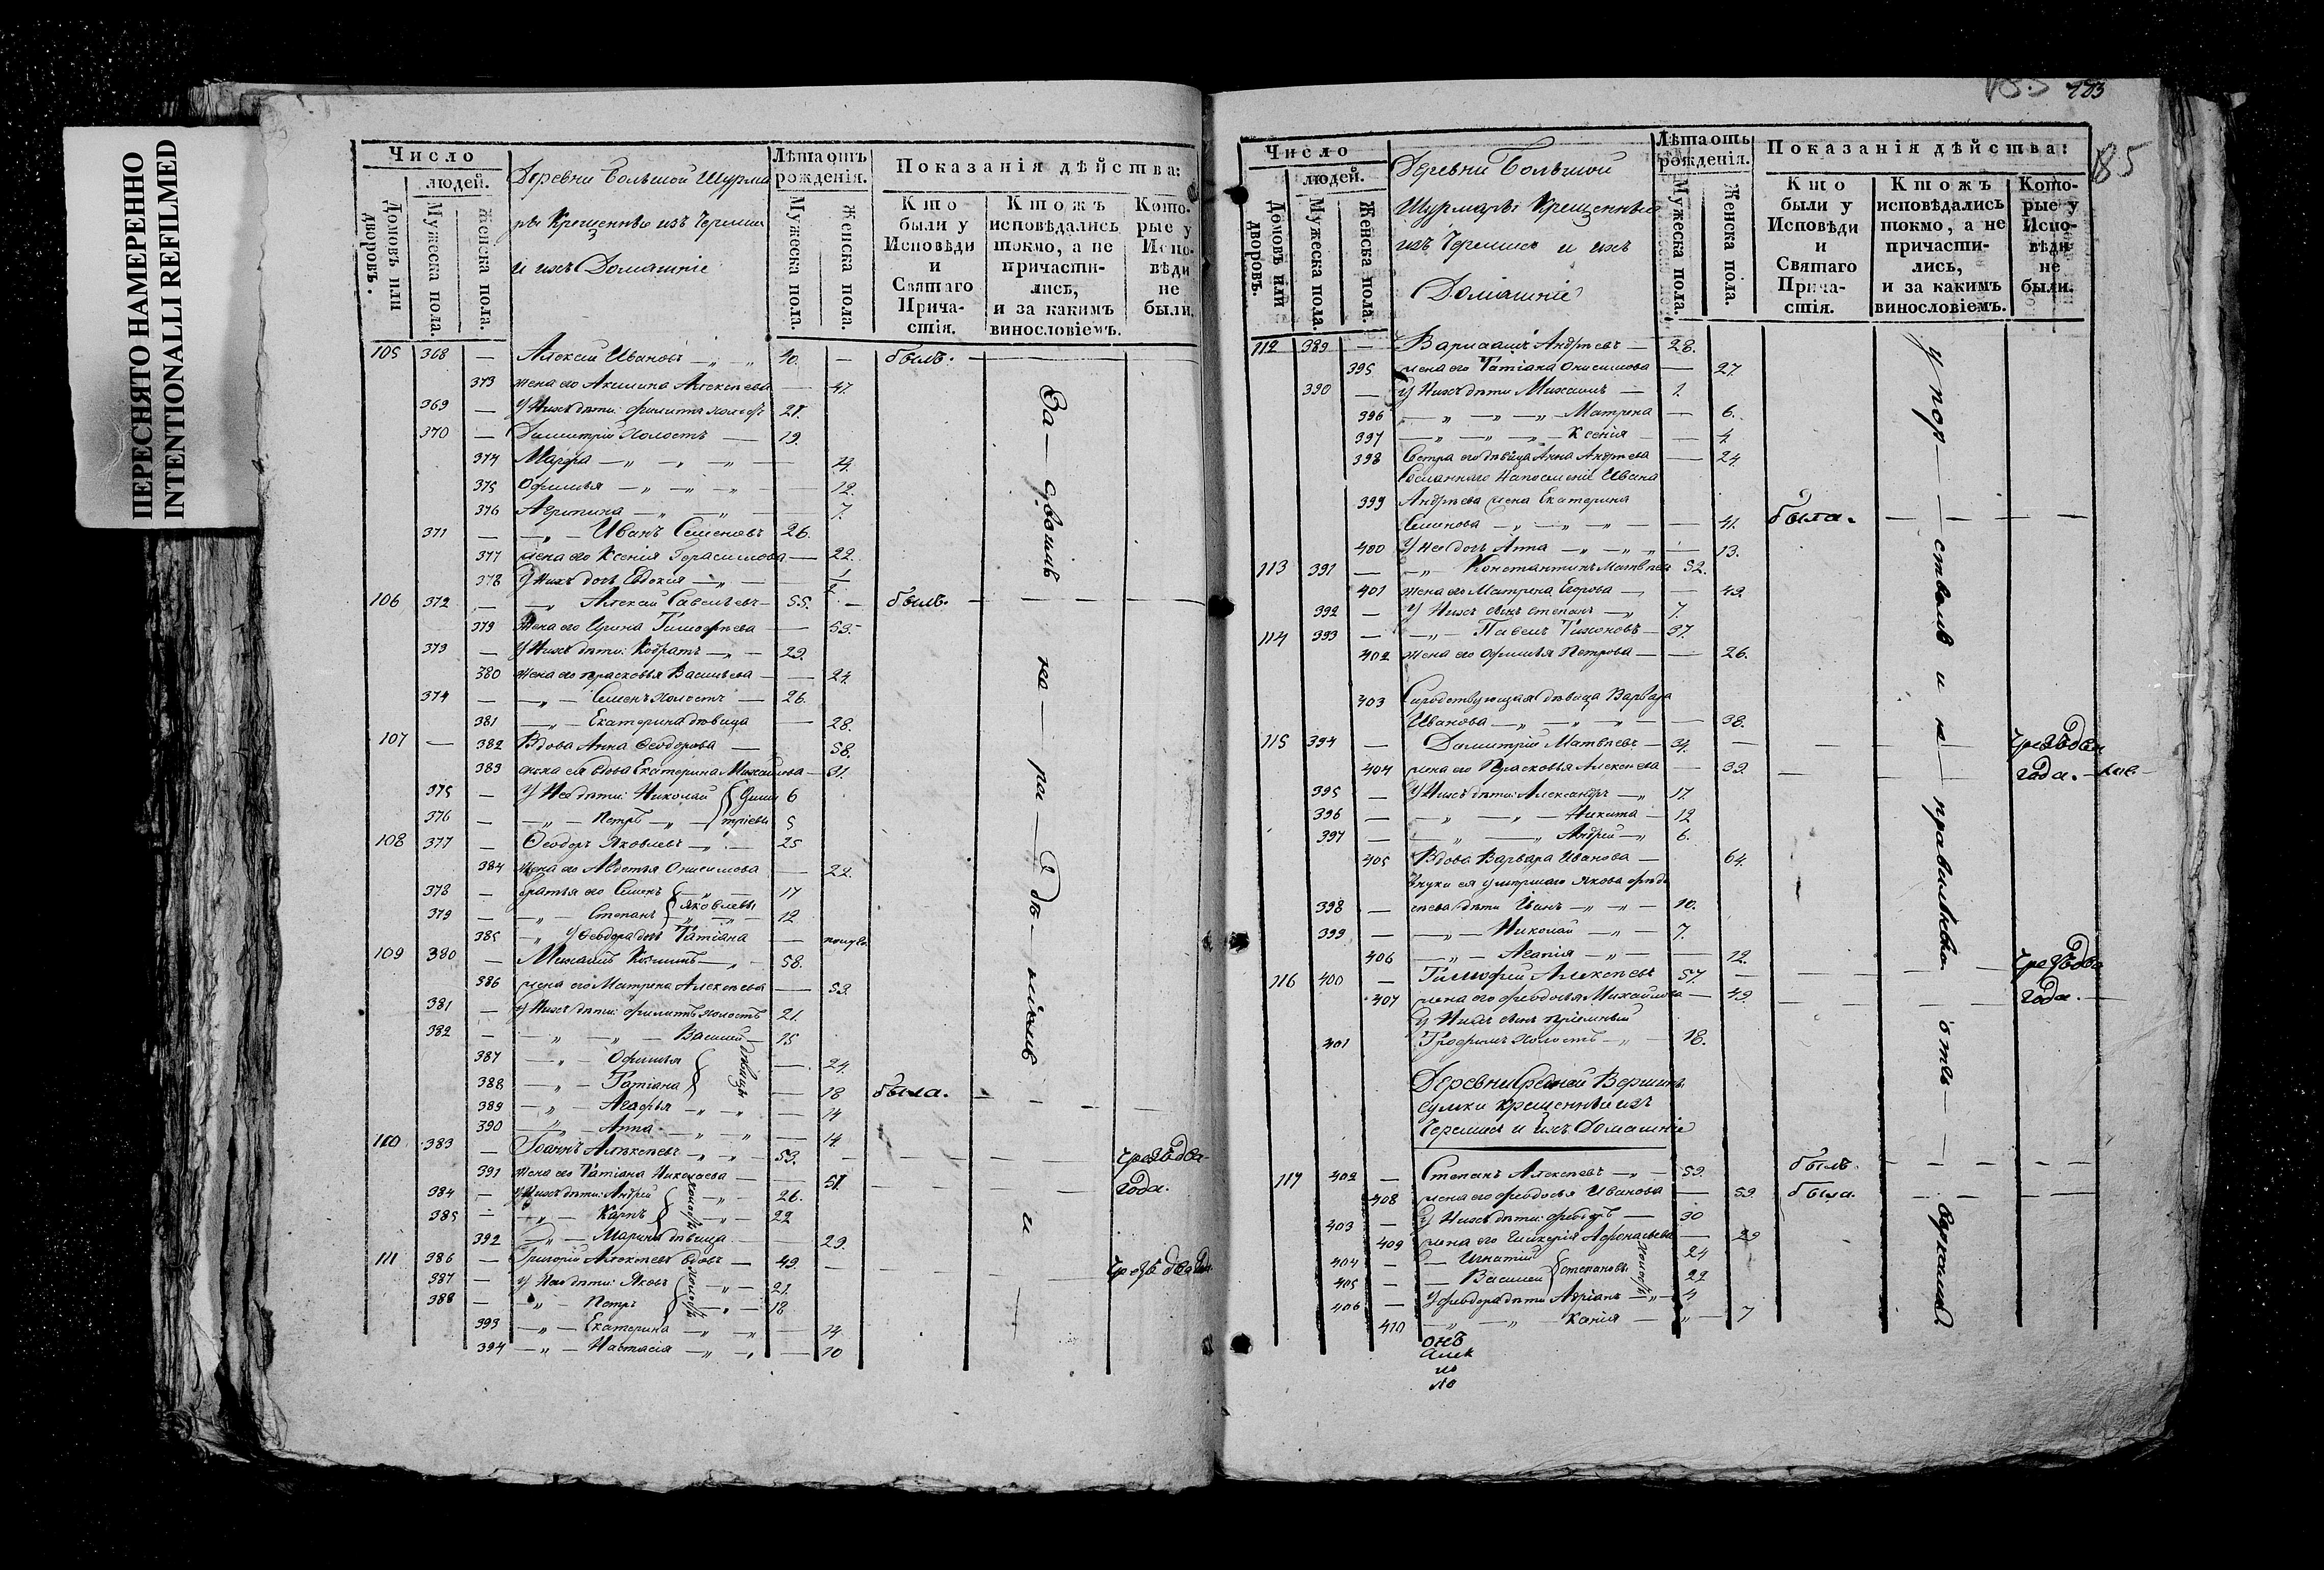 ПЕРЕСНЯТО НАМЕРЕННО
INTENTIONALLI REFILMED
Число
людей.
Домовъ или дворовъ.
Мужеска пола.
Женска пола.
Деревни Большой Шурма
ры Крещенные изъ Черемис
и ихъ Домашніе
Лѣта отъ рожденія.
Мужеска пола.
Женска пола.
Показанія дѣйства:
Кто были у Исповѣди и Святаго Причастія.
Ктожъ исповѣдались токмо, а не причастились, и за какимъ винословіемъ.
Которые у Исповѣди не были.
105 368 — Алексей Ивановъ — 40. — былъ.
373 жена его Акилина Алексеева — 47.
369 — У нихъ дѣти: Филипъ холостъ 21.
370 — Димитрій холостъ — 19.
374 Марѳа — 14.
375 Офимья — 12.
376 Агрипина — 7.
371 — Иванъ Семеновъ 26.
377 жена его Ксенія Герасимова — 22.
378 У нихъ дочь Евдокия — 1/2
106 372 — Алексей Савельевъ — 55. — былъ.
379 Жена его Ирина Тимофеева — 53.
373 — У нихъ дѣти: Кодратъ — 29.
380 жена его Прасковья Васильева — 24.
374 — Семенъ холостъ — 26.
381 — Екатерина дѣвица — 28.
107 — 382 Вдова Анна Ѳеодорова — 58.
383 сноха ея вдова Екатерина Михаилова — 31.
375 — У нея дѣти: Николай Дими 6
376 — Петръ — тріевы 5
108 377 — Ѳеодоръ Яковлевъ — 25
384 жена его Авдотья Онисимова — 22.
378 — братья его Семенъ — 17
Яковлевы
379 — Степанъ — 12
385 — У Ѳеодора дочь Татіана — полуго
109 380 — Михаилъ Козминъ — 58.
386 жена его Матрена Алексеева — 53.
381 — У нихъ дѣти: Филипъ холостъ 21.
382 — Василей — 15
387 — Офимья — 24.
388 — Татіана — 18 была.
дѣвицы
389 — Агафья — 14
390 — Анна — 14.
110 383 — Іоаннъ Алексеевъ — 53. — чрезъ два
391 жена его Татіана Николаева — 51. — года.
384 — У нихъ дѣти: Андрей — 26.
385 — Карпъ — 22
холосты
392 — Марина дѣвица — 29.
111 386 — Григорій Алексеевъ вдовъ — 49 — чрезъ два
387 — У него дѣти: Яковъ — 21.
388 — Петръ — 18
холосты
393 — Екатерина — 14.
394 — Настасія — 10
За — — ю — ра — дѣ — ніемъ — и —
185 183
185
Число
людей.
Домовъ или дворовъ.
Мужеска пола.
Женска пола.
Деревни Большой
Шурмары Крещенные
изъ Черемис и ихъ
Домашніе
Лѣта отъ рожденія.
Мужеска пола.
Женска пола.
Показанія дѣйства:
Кто были у Исповѣди и Святаго Причастія.
Ктожъ исповѣдались токмо, а не причастились, и за какимъ винословіемъ.
Которые у Исповѣди не были.
112 389 — Варлаамъ Андреевъ — 28.
395 жена его Татіана Онисимова — 27.
390 — У нихъ дѣти Михаилъ — 1.
396 — Матрена — 6.
397 — Ксенія — 4.
398 Сестра его дѣвица Анна Андреева — 24.
Сосланнаго на поселеніе Ивана
399 Андреева жена Екатерина
Семенова — 41. была.
400 У нея дочь Анна — 13.
113 391 — Константинъ Матвеевъ 52.
401 жена его Матрена Егорова — 49.
392 — У нихъ сынъ Степанъ — 7.
114 393 — Павелъ Тихоновъ — 37.
402 жена его Офимья Петрова — 26.
403 Сиротствующая дѣвица Варвара
Иванова — 38.
115 394 — Димитрій Матвеевъ — 34. — чрезъ два
404 жена его Прасковья Алексеева — 39. — года.
395 — У нихъ дѣти: Александръ — 17.
396 — Никита — 12
397 — Андрей — 6.
405 Вдова Варвара Иванова — 64.
внуки ея умершаго Якова
398 — дѣти Иванъ — 10.
399 — Николай — 7.
406 — Агапія — 12.
116 400 — Тимофей Алексеевъ 57. — чрезъ два
407 жена его Феодосья Михайлова — 49. — года.
У нихъ сынъ пріемный
401 Трофимъ холостъ — 18.
Деревни Средней Вершины
сумки крещенные изъ
Черемис и ихъ Домашніе
117 402 — Степанъ Алексеевъ — 59. былъ.
408 жена его Феодосья Иванова — 59 была.
403 — У нихъ дѣти: Феодоръ — 30
409 жена его Гликерія Афонасьева — 29
404 — Игнатій 24
405 — Василей Степановы 22
холосты
406 — У Феодора дѣти Адріанъ — 4
410 — Ксенія — 7
упор — — ствомъ и не — правильною — отъ — —